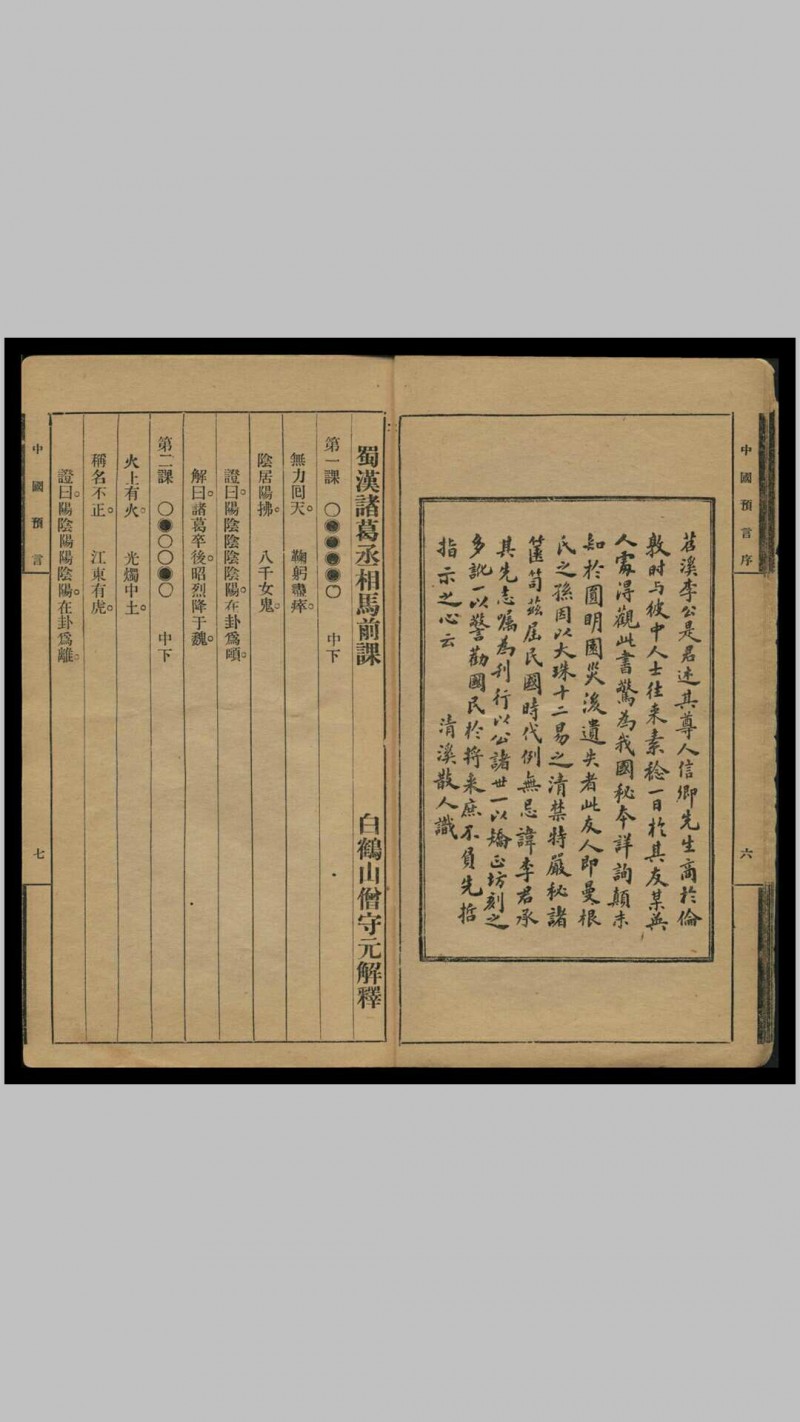 中國預言序
六
苕溪李公是君述其尊人信卿先生商於倫
敦时与彼中人士往来素稔一日於其友某英
人處得觀此書驚為我國秘本詳詢顛末
知於圓明園災後遺失者此友人即曼根
氏之孫因以大珠十二易之清禁特嚴秘諸
篋笥茲屆民國時代例無忌諱李君承
其先志嘱為刊行以公諸世一以矯正坊刻之
多訛一以警勸國民於将来庶不負先哲
指示之心云
清溪散人識
蜀漢諸葛丞相馬前課
白鶴山僧守元解釋
第一課 ○●●●●○ 中下
無力囘天。 鞠躬盡瘁。
陰居陽拂。 八千女鬼。
證曰。陽陰陰陰陰陽。在卦爲頤。
解曰。諸葛卒後。昭烈降于魏。
第二課 ○●○○●○ 中下
火上有火。 光燭中土。
稱名不正。 江東有虎。
證曰。陽陰陽陽陰陽。在卦爲離。
中國預言
七